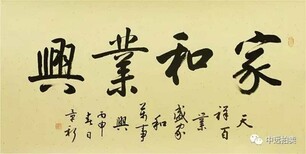 家和業興
天
祥百
業
盛家
和
萬事
興
丙申
春日
中远拍卖